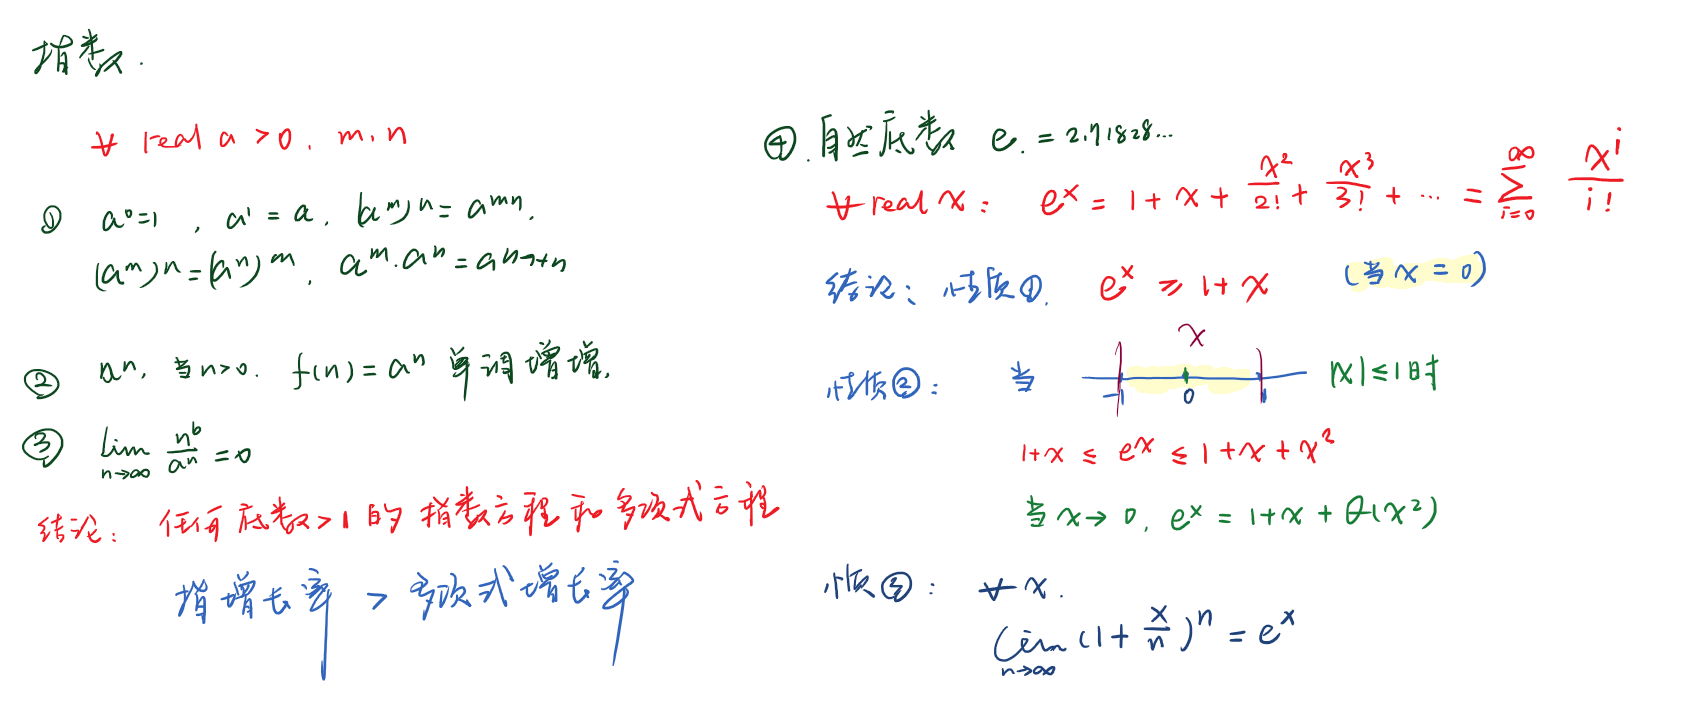 指数.
∀ real a > 0, m, n
① a⁰=1, a¹ = a, (aᵐ)ⁿ = aᵐⁿ,
(aᵐ)ⁿ = (aⁿ)ᵐ, aᵐ·aⁿ = aᵐ⁺ⁿ
② aⁿ, 当n>0. f(n) = aⁿ 单调增增,
③ lim n→∞ nᵇ/aⁿ = 0
结论: 任何底数>1的指数方程和多项式方程
指增长率 > 多项式增长率
④. 自然底数 e. = 2.71828...
∀ real x: eˣ = 1 + x + x²/2! + x³/3! + ... = ∑ i=0 ∞ xⁱ/i!
结论: 性质①. eˣ ≥ 1 + x (当x = 0)
性质②: 当 x -1 0 1 |x| ≤ 1时
1+x ≤ eˣ ≤ 1+x+x²
当x→0, eˣ = 1+x+θ(x²)
性质③: ∀ x.
lim n→∞ (1 + x/n)ⁿ = eˣ